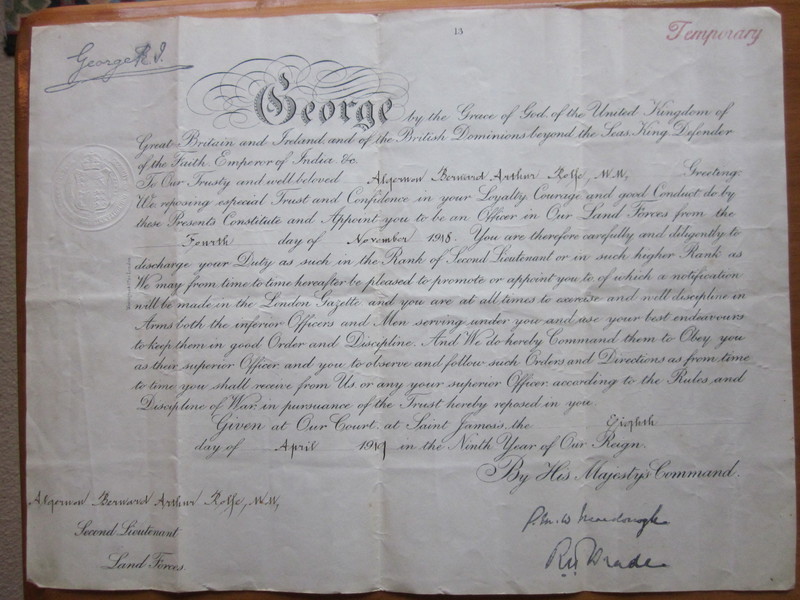 George R I.
13
Temporary
George by the Grace of God, of the United Kingdom of
Great Britain and Ireland and of the British Dominions beyond the Seas, King, Defender
of the Faith, Emperor of India &c.
To Our Trusty and well beloved Algernon Bernard Arthur Rolfe, M.M, Greeting:
We reposing especial Trust and Confidence in your Loyalty, Courage, and good Conduct, do by
these Presents Constitute and Appoint you to be an Officer in Our Land Forces from the
Fourth day of November 1918. You are therefore carefully and diligently to
discharge your Duty as such in the Rank of Second Lieutenant or in such higher Rank as
We may from time to time hereafter be pleased to promote or appoint you to of which a notification
will be made in the London Gazette and you are at all times to exercise and well discipline in
Arms both the inferior Officers and Men serving under you and use your best endeavours
to keep them in good Order and Discipline. And We do hereby Command them to Obey you
as their superior Officer and you to observe and follow such Orders and Directions as from time
to time you shall receive from Us, or any your superior Officer according to the Rules and
Discipline of War, in pursuance of the Trust hereby reposed in you.
Given at Our Court, at Saint James's, the Eighth
day of April 1919 in the Ninth Year of Our Reign.
By His Majesty's Command.
Algernon Bernard Arthur Rolfe, M.M,
Second Lieutenant
Land Forces.